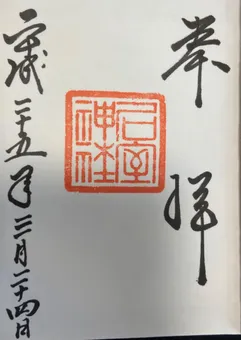 奉拝
石室神社
平成二十五年三月二十四日